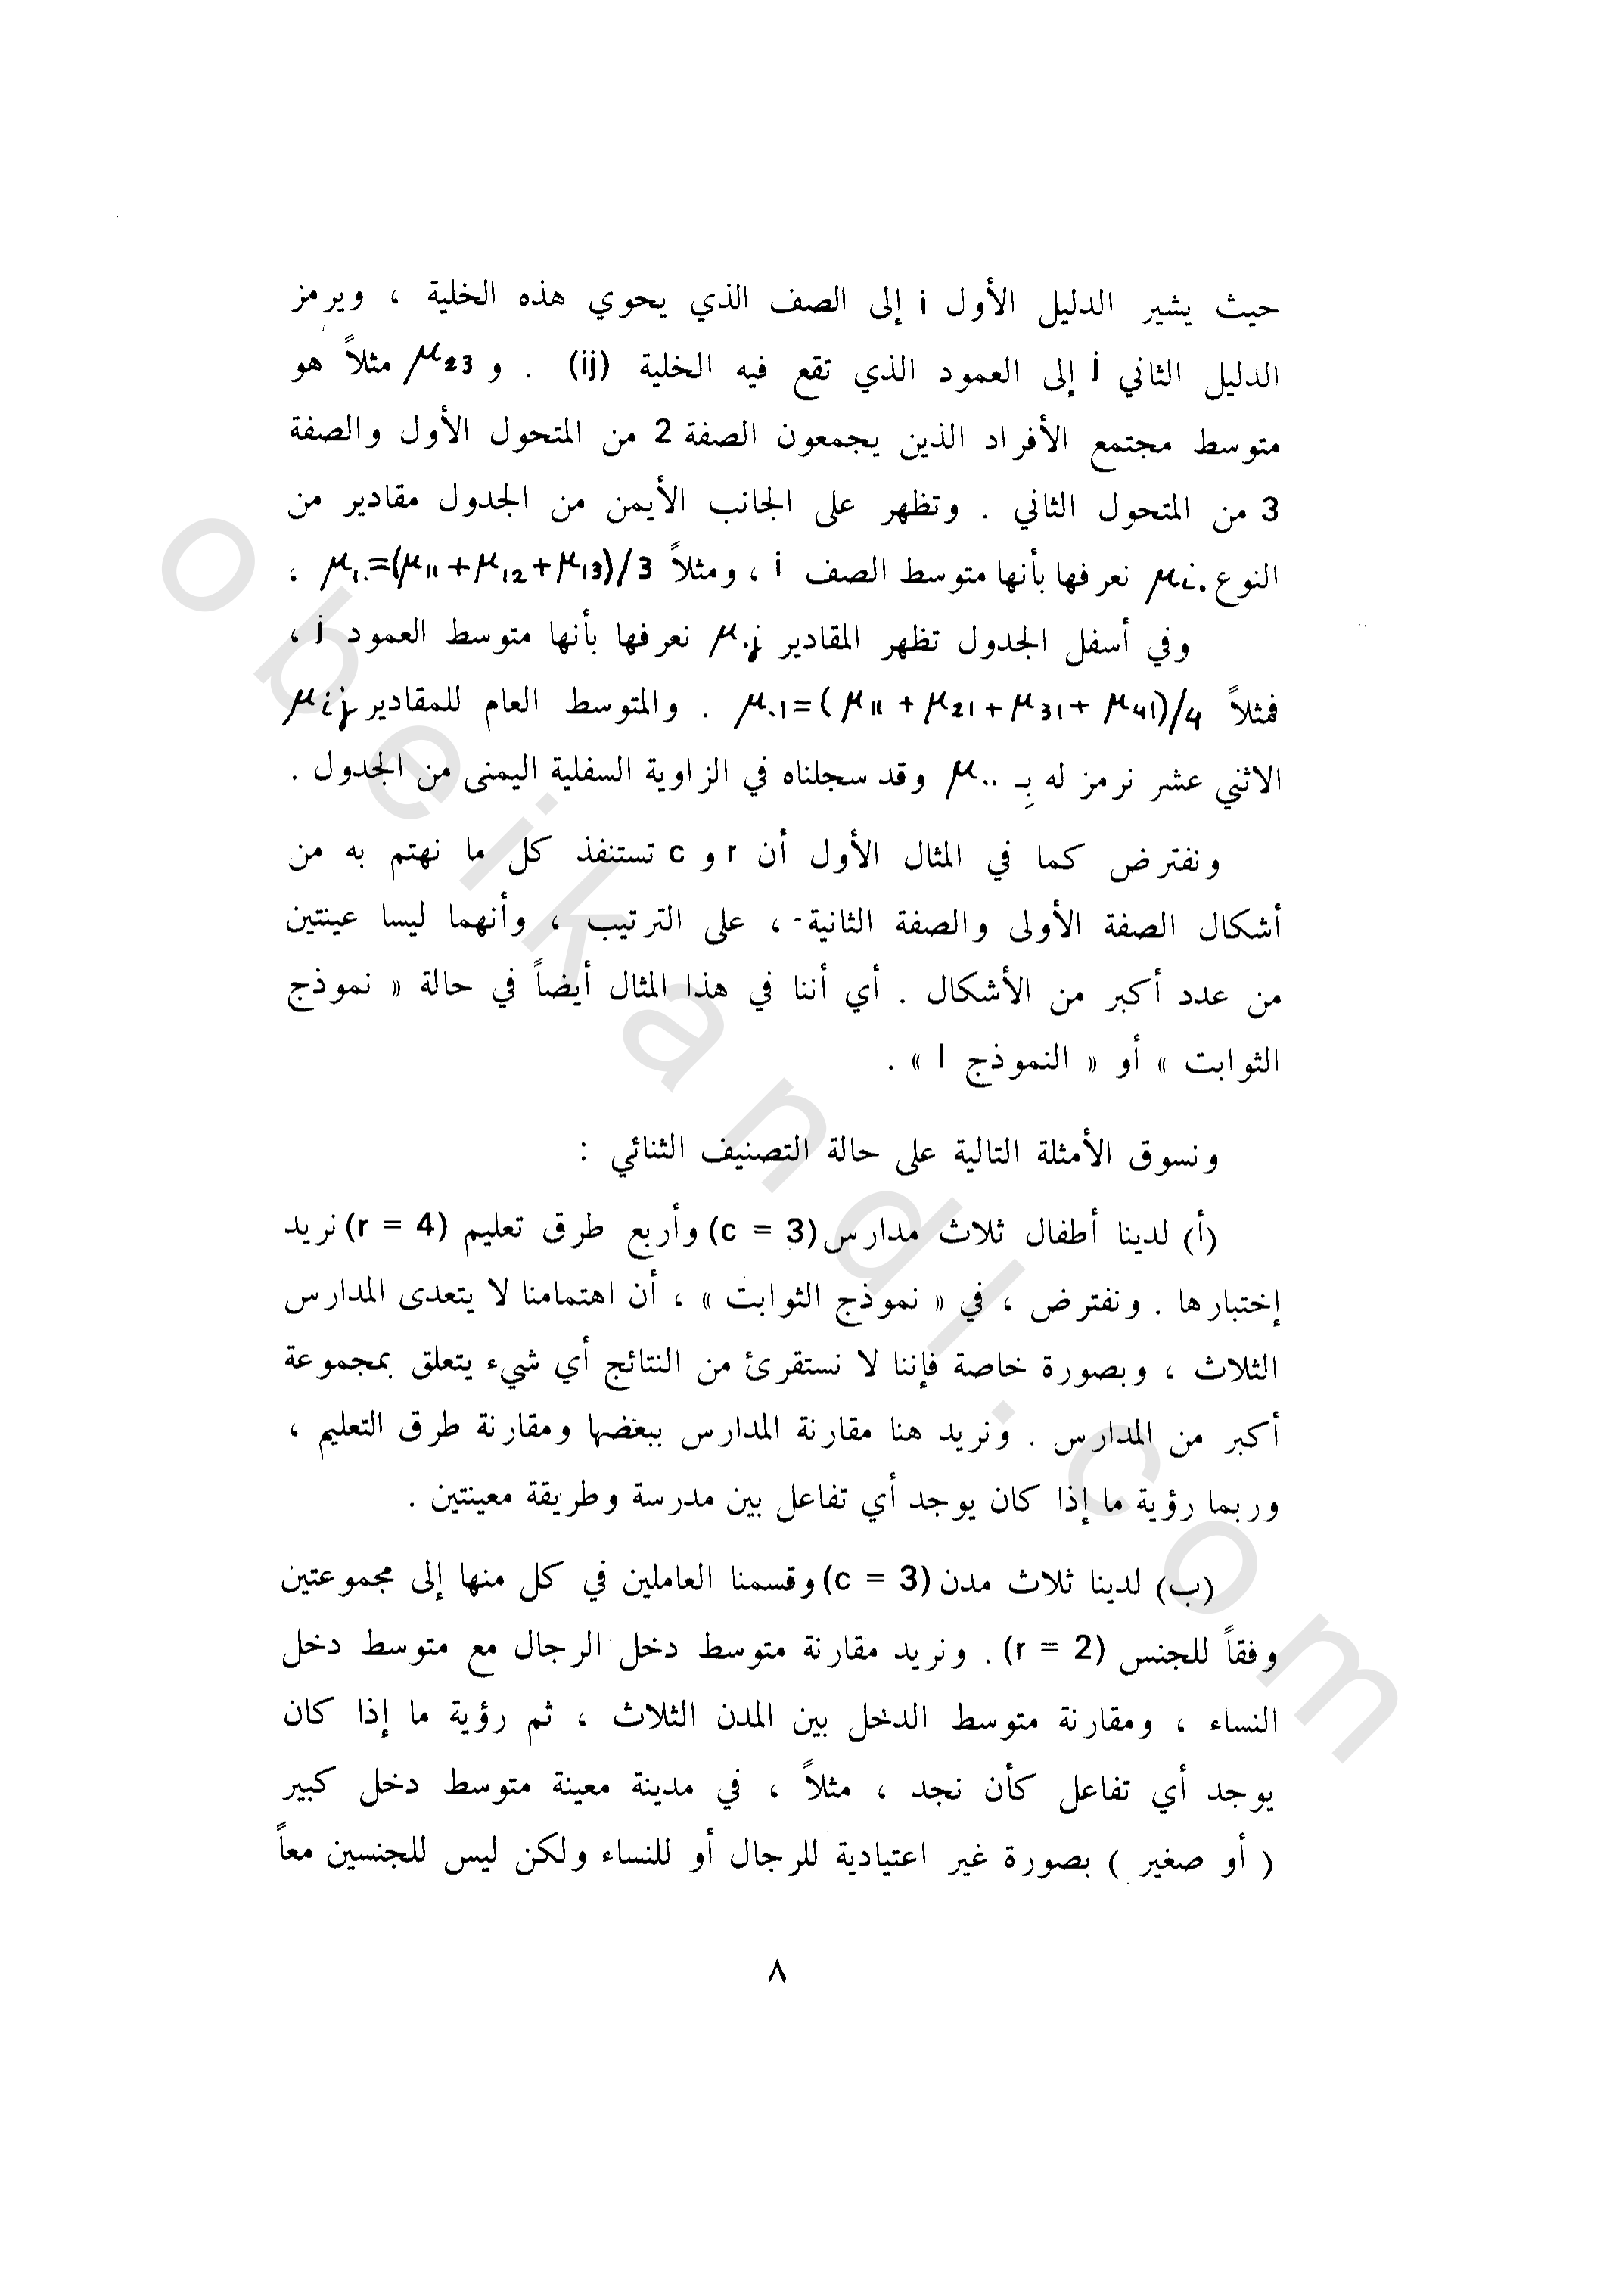 حيث يشير الدليل الأول i إلى الصف الذي يحوي هذه الخلية ، ويرمز
الدليل الثاني j إلى العمود الذي تقع فيه الخلية (ij) . و μ23 مثلاً هو
متوسط مجتمع الأفراد الذين يجمعون الصفة 2 من المتحول الأول والصفة
3 من المتحول الثاني . وتظهر على الجانب الأيمن من الجدول مقادير من
النوع μi. نعرفها بأنها متوسط الصف i ، ومثلاً μ1.=(μ11+μ12+μ13)/3 ،
وفي أسفل الجدول تظهر المقادير μ.j نعرفها بأنها متوسط العمود j ،
فمثلاً μ.1=(μ11+μ21+μ31+μ41)/4 . والمتوسط العام للمقادير μij
الاثني عشر نرمز له بِـ μ.. وقد سجلناه في الزاوية السفلية اليمنى من الجدول .
ونفترض كما في المثال الأول أن r و c تستنفذ كل ما نهتم به من
أشكال الصفة الأولى والصفة الثانية ، على الترتيب ، وأنهما ليسا عينتين
من عدد أكبر من الأشكال . أي أننا في هذا المثال أيضاً في حالة « نموذج
الثوابت » أو « النموذج I » .
ونسوق الأمثلة التالية على حالة التصنيف الثنائي :
(أ) لدينا أطفال ثلاث مدارس (c = 3) وأربع طرق تعليم (r = 4) نريد
إختبارها . ونفترض ، في « نموذج الثوابت » ، أن اهتمامنا لا يتعدى المدارس
الثلاث ، وبصورة خاصة فإننا لا نستقرئ من النتائج أي شيء يتعلق بمجموعة
أكبر من المدارس . ونريد هنا مقارنة المدارس ببعضها ومقارنة طرق التعليم ،
وربما رؤية ما إذا كان يوجد أي تفاعل بين مدرسة وطريقة معينتين .
(ب) لدينا ثلاث مدن (c = 3) وقسمنا العاملين في كل منها إلى مجموعتين
وفقاً للجنس (r = 2) . ونريد مقارنة متوسط دخل الرجال مع متوسط دخل
النساء ، ومقارنة متوسط الدخل بين المدن الثلاث ، ثم رؤية ما إذا كان
يوجد أي تفاعل كأن نجد ، مثلاً ، في مدينة معينة متوسط دخل كبير
( أو صغير ) بصورة غير اعتيادية للرجال أو للنساء ولكن ليس للجنسين معاً
٨
obeikandl.com